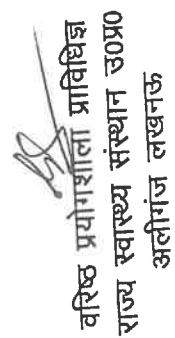 वरिष्ठ प्रयोगशाला प्राविधिज्ञ
राज्य स्वास्थ्य संस्थान उ०प्र०
अलीगंज लखनऊ